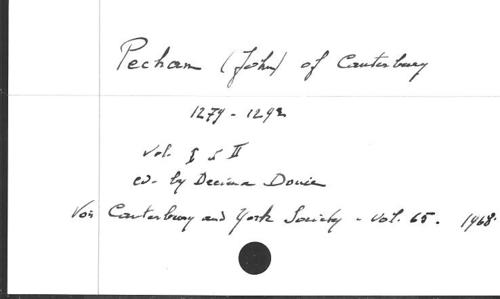 Pecham (John) of Canterbury
1279-1292
vol. I et II
ed. by Decima Douie
Voir Canterbury and York Society - vol. 65. 1968.